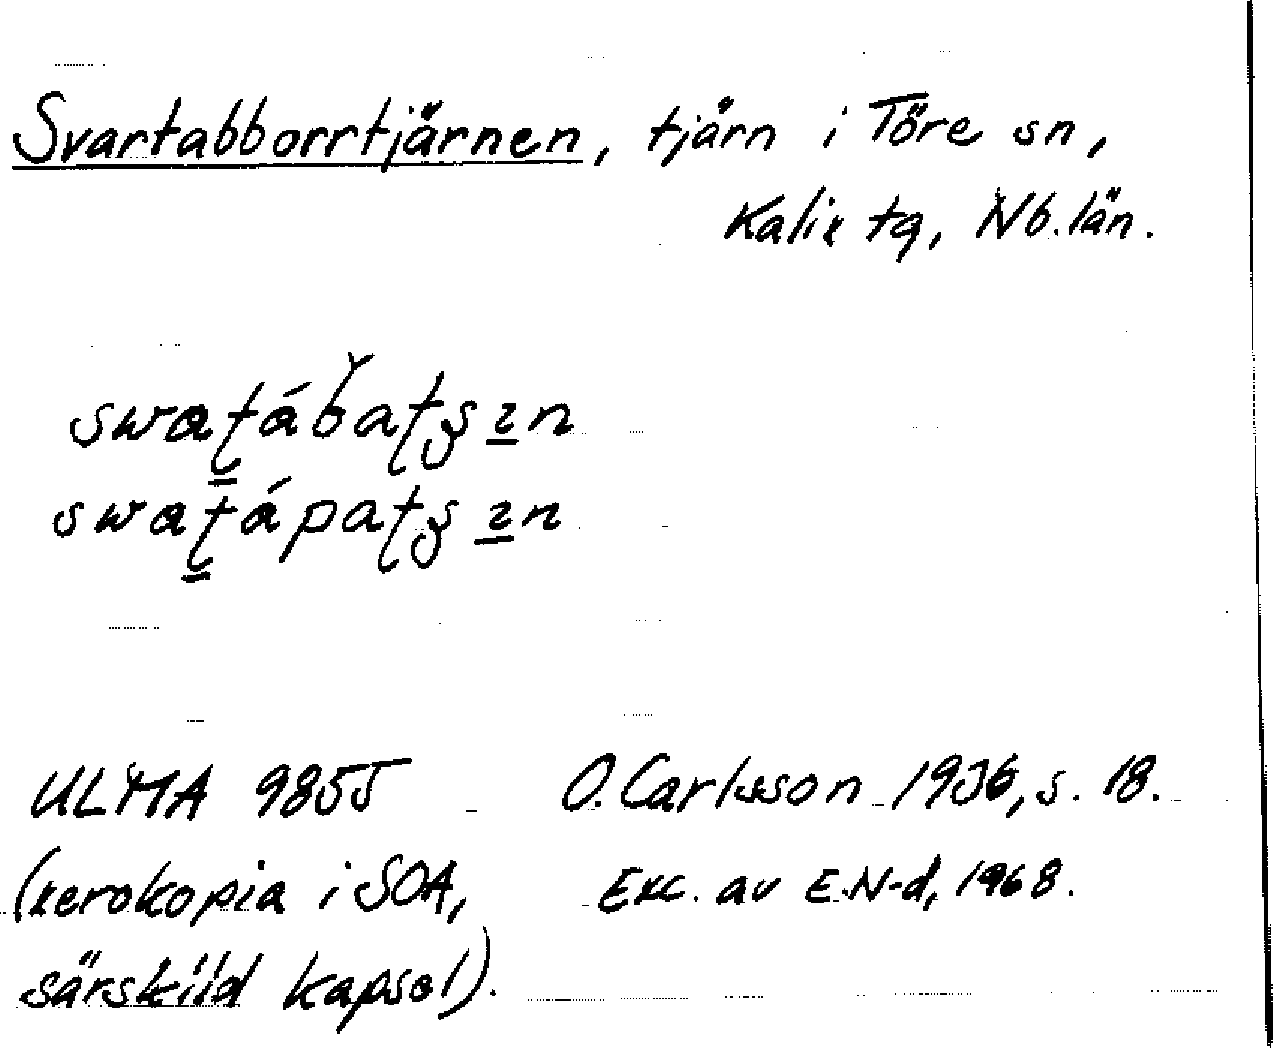 Svartabborrtjärnen, tjärn i Töre sn,
Kalix tg, Nb. län.
swaʈábaʈʂın
swaʈápaʈʂın
ULMA 9855 O. Carlsson 1936, s. 18.
(xerokopia i SOA, Exc. av E.N-d, 1968.
särskild kapsel).